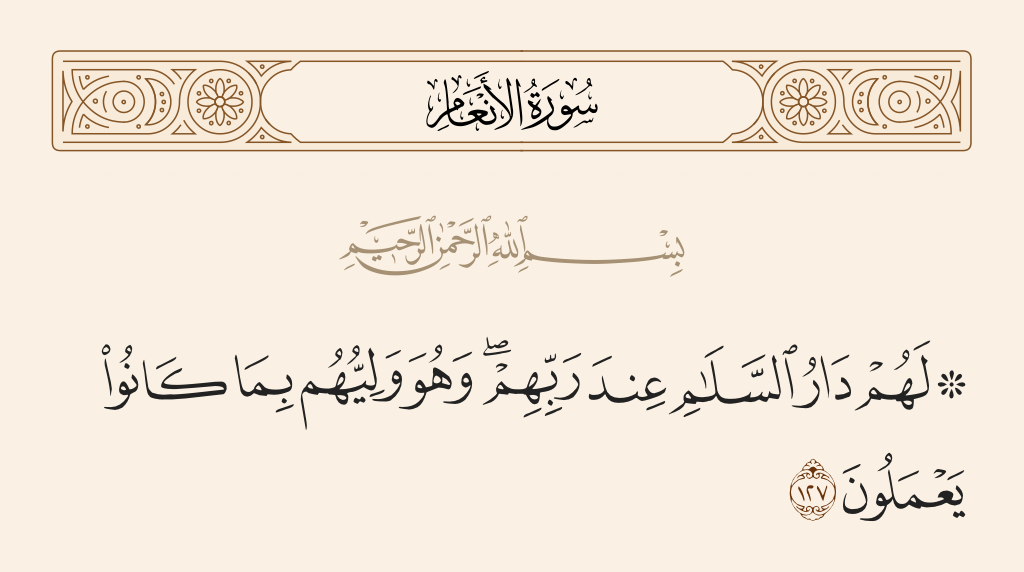 سُورَةُ الأَنْعَامِ
بِسْمِ ٱللَّهِ ٱلرَّحْمَٰنِ ٱلرَّحِيمِ
۞ لَهُمْ دَارُ ٱلسَّلَٰمِ عِندَ رَبِّهِمْ ۖ وَهُوَ وَلِيُّهُم بِمَا كَانُوا۟
يَعْمَلُونَ ١٢٧